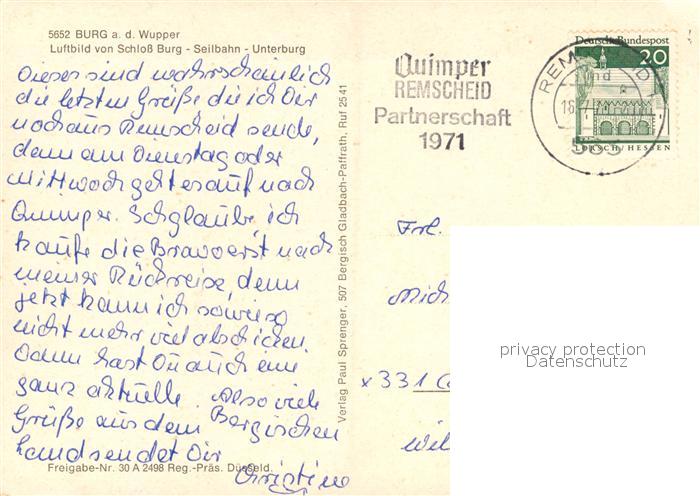 5652 BURG a. d. Wupper
Luftbild von Schloß Burg - Seilbahn - Unterburg
Dieses sind wahrscheinlich
die letzten Grüße die ich Dir
noch aus Remscheid sende,
denn am Dienstag oder
Mittwoch geht es auf nach
Quimper. Ich glaube ich
kaufe die Bravo erst nach
meiner Rückreise, denn
jetzt kann ich sowieso
nicht mehr viel abschicken.
Dann hast Du auch eine
ganz aktuelle. Also viele
Grüße aus dem Bergischen
Land sendet Dir
Christine
Freigabe-Nr. 30 A 2498 Reg.-Präs. Düsseld.
Verlag Paul Sprenger, 507 Bergisch Gladbach-Paffrath, Ruf 25 41
Quimper
REMSCHEID
Partnerschaft
1971
Deutsche Bundespost
20
LORSCH/HESSEN
REMSCHEID
Frl.
Mich
x 331
privacy protection
Datenschutz